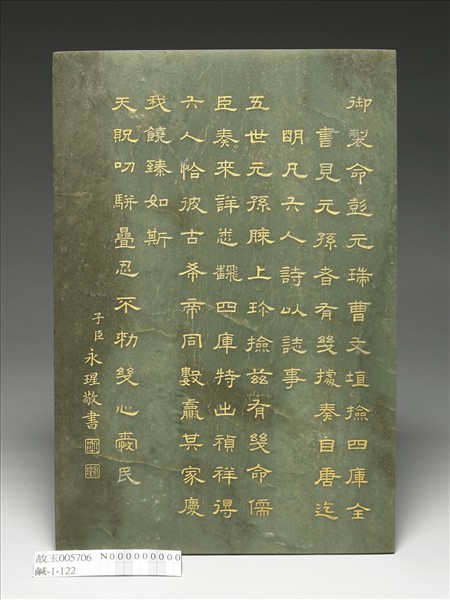 御製命彭元瑞曹文埴撿四庫全
書見元孫者有幾據奏自唐迄
明凡六人詩以誌事
五世元孫膝上珍撿茲有幾命儒
臣奏來詳悉翻四庫特出禎祥得
六人恰彼古希帝同數贏其家慶
我饒臻如斯
天貺叨駢疊忍不勑幾心愛民
子臣永瑆敬書
故玉005706 N000000000
鹹-1-122